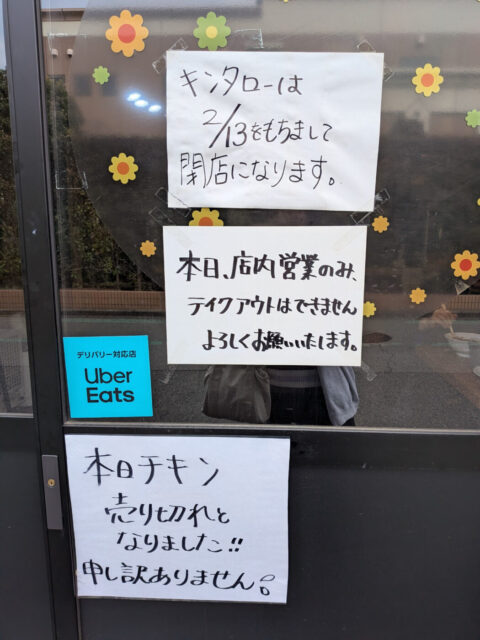 キンタローは
2/13をもちまして
閉店になります。
本日、店内営業のみ、
テイクアウトはできません
よろしくお願いいたします。
デリバリー対応店
Uber
Eats
本日チキン
売り切れと
なりました!!
申し訳ありません。